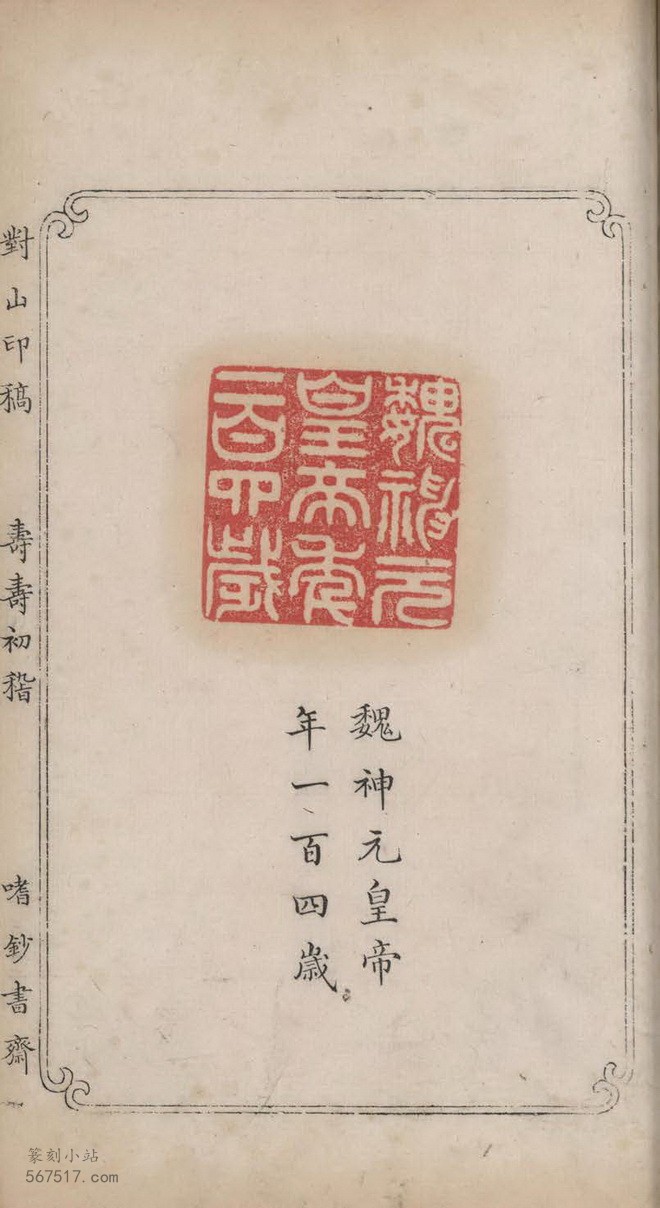 魏神元
皇帝年
一百四歲
魏神元皇帝
年一百四歲
對山印稿 壽壽初稽 嗜鈔書齋
篆刻小站
567517.com